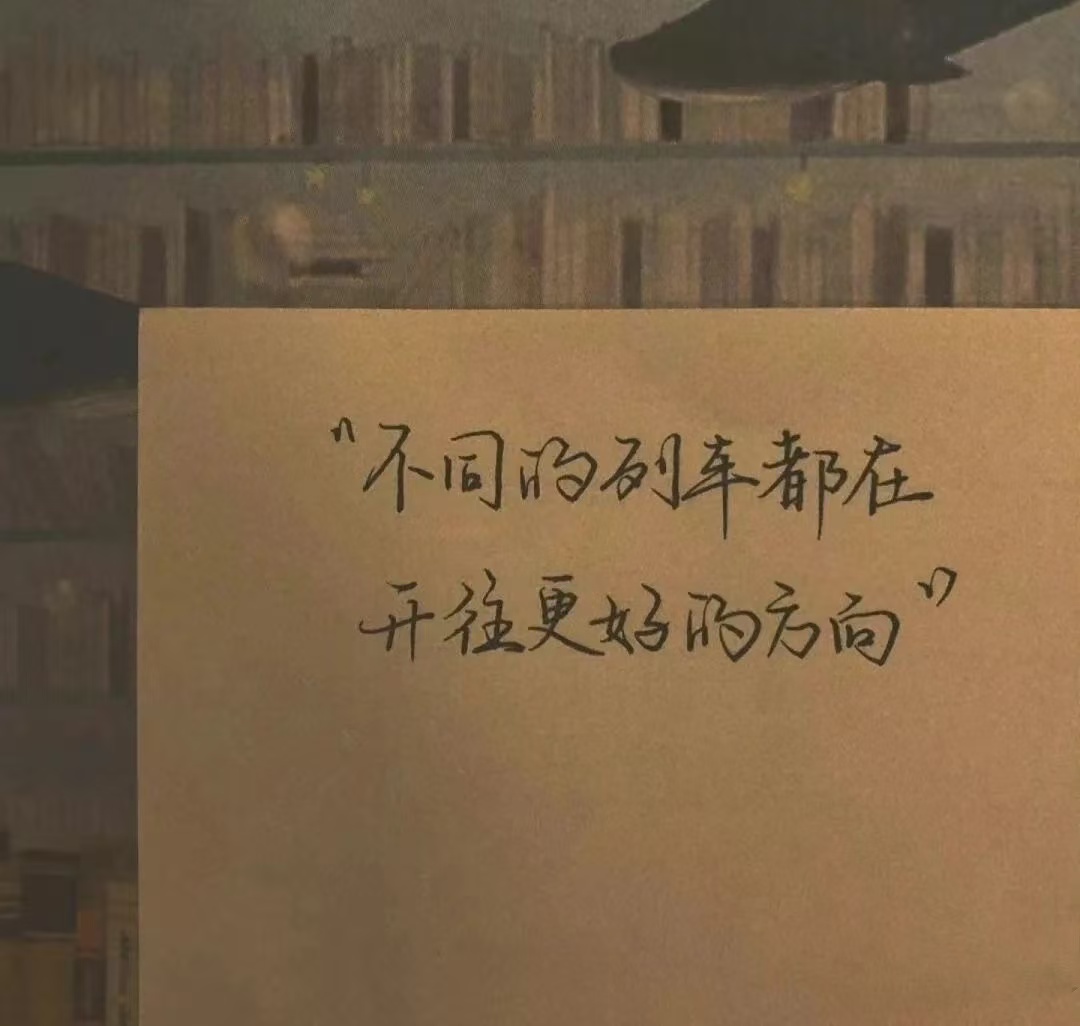 "不同的列车都在
开往更好的方向"